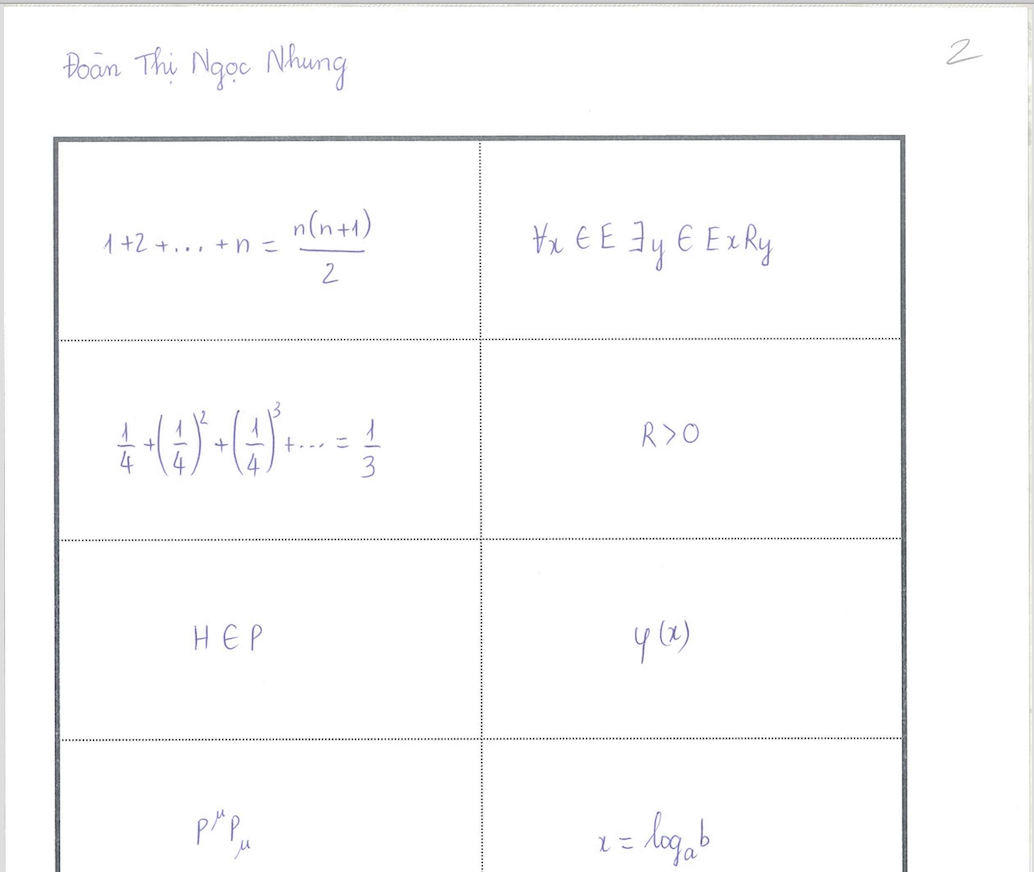 Đoàn Thị Ngọc Nhung
2
1 + 2 + ... + n = n(n+1)/2
∀x ∈ E ∃y ∈ E xRy
1/4 + (1/4)² + (1/4)³ + ... = 1/3
R > 0
H ∈ P
φ(x)
P^μ P_μ
x = log_a b